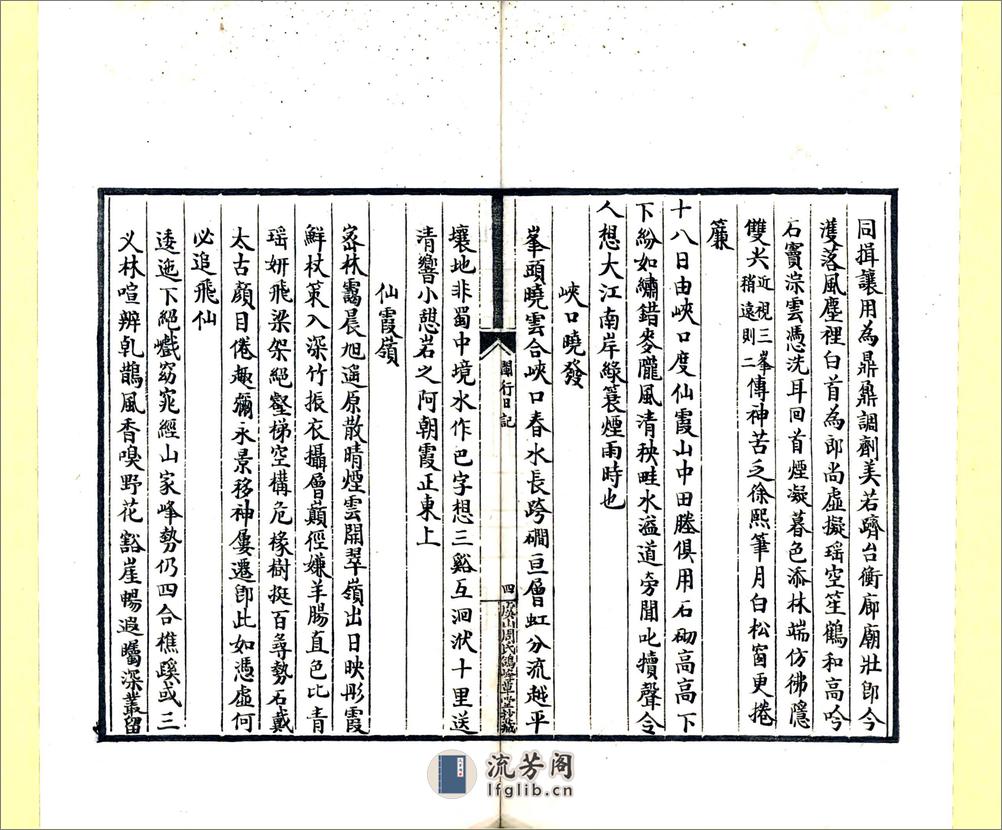 同揖讓用為鼎鼎調劑美若躋台衡廊廟壯卽今
濩落風塵裡白首為郎尚虛擬瑶空笙鶴和高吟
石竇淙雲憑洗耳回首煙凝暮色添林端仿彿隱
雙尖近視三峯稍遠則二傳神苦乏徐熙筆月白松窗更捲
簾
十八日由峽口度仙霞山中田塍俱用石砌高高下
下紛如繡錯麥隴風清秧畦水溢道旁聞叱犢聲令
人想大江南岸綠簑煙雨時也
峽口曉發
峯頭曉雲合峽口春水長跨磵亘層虹分流越平
閩行日記
四
虞山周氏鴿峰草堂抄藏
壤地非蜀中境水作巴字想三谿互洄洑十里送
清響小憇岩之阿朝霞正東上
仙霞嶺
宻林靄晨旭遥原散晴煙雲開翠嶺出日映彤霞
鮮杖策入深竹振衣攝層巔徑嫌羊腸直色比青
瑶妍飛梁架絕壑梯空構危椽樹挺百尋勢石戴
太古顔目倦趣彌永景移神屢遷卽此如憑虛何
必追飛仙
逶迤下絕巘窈窕經山家峰勢仍四合樵蹊或三
义林喧辨乳鵲風香嗅野花豁崖暢遐矚深叢留
流芳阁
lfglib.cn